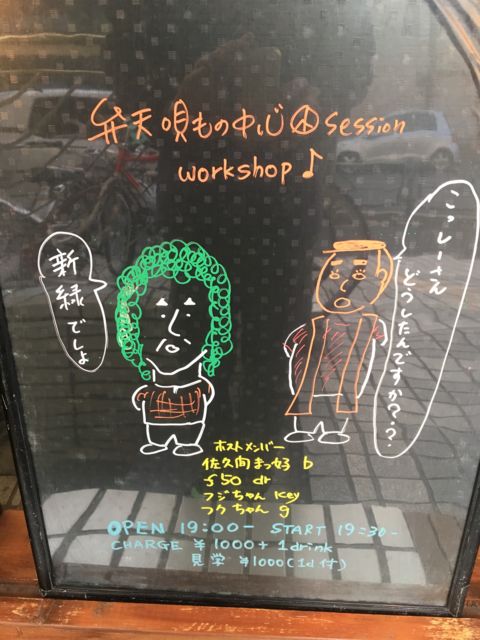 弁天唄もの中心☮session
workshop♪
新緑でしょ
こっしーさん
どうしたんですか？？
ホストメンバー
佐久間まつ好 b
550 dr
フジちゃん Key
つケちゃん g
OPEN 19:00- START 19:30-
CHARGE ¥1000+1drink
見学 ¥1000(1d付)